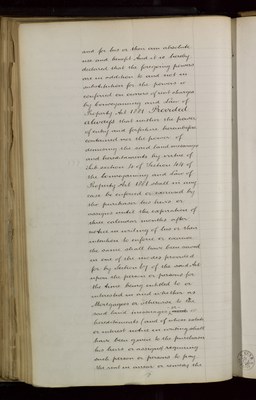 and for his or their own absolute
use and benefit And it is hereby
declared that the foregoing powers
are in addition to and not in
substitution for the powers
conferred on owners of rent charges
by Conveyancing and Law of
Property Act 1881 Provided
always that neither the power
of entry and forfeiture hereinbefore
contained nor the power of
demising the said land messuages
and hereditaments by virtue of
Sub section 4 of Section 44 of
the Conveyancing and Law of
Property Act 1881 shall in any
case be enforced or exercised by
the purchaser his heirs or
assigns until the expiration of
three calendar months after
notice in writing of his or their
intention to enforce or exercise
the same shall have been served
in one of the modes provided
for by Section 67 of the said Act
upon the person or persons for
the time being entitled to or
interested in and whether as
Mortgagees or otherwise to the
said land messuages or
hereditaments (and of whose estate
or interest notice in writing shall
have been given to the purchaser
his heirs or assigns) requiring
such person or persons to pay
the rent in arrear or remedy the